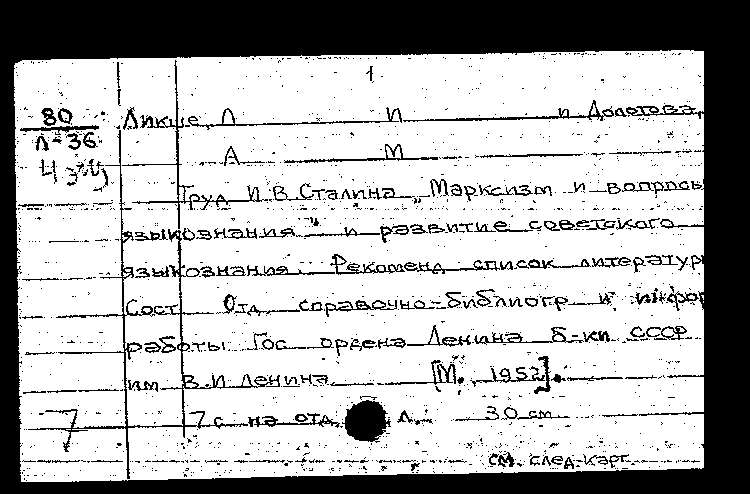 1
80 Ликше, Л И и Долотова,
Л-36 А М
4 экз
Труд И В Сталина „Марксизм и вопросы
языкознания" и развитие советского
языкознания. Рекоменд список литературы
Сост Отд. справочно-библиогр и инфор
работы Гос ордена Ленина б-ки СССР
им В.И Ленина [М., 1952].
7 7 с на отд. л. 30 см
см. след. карт